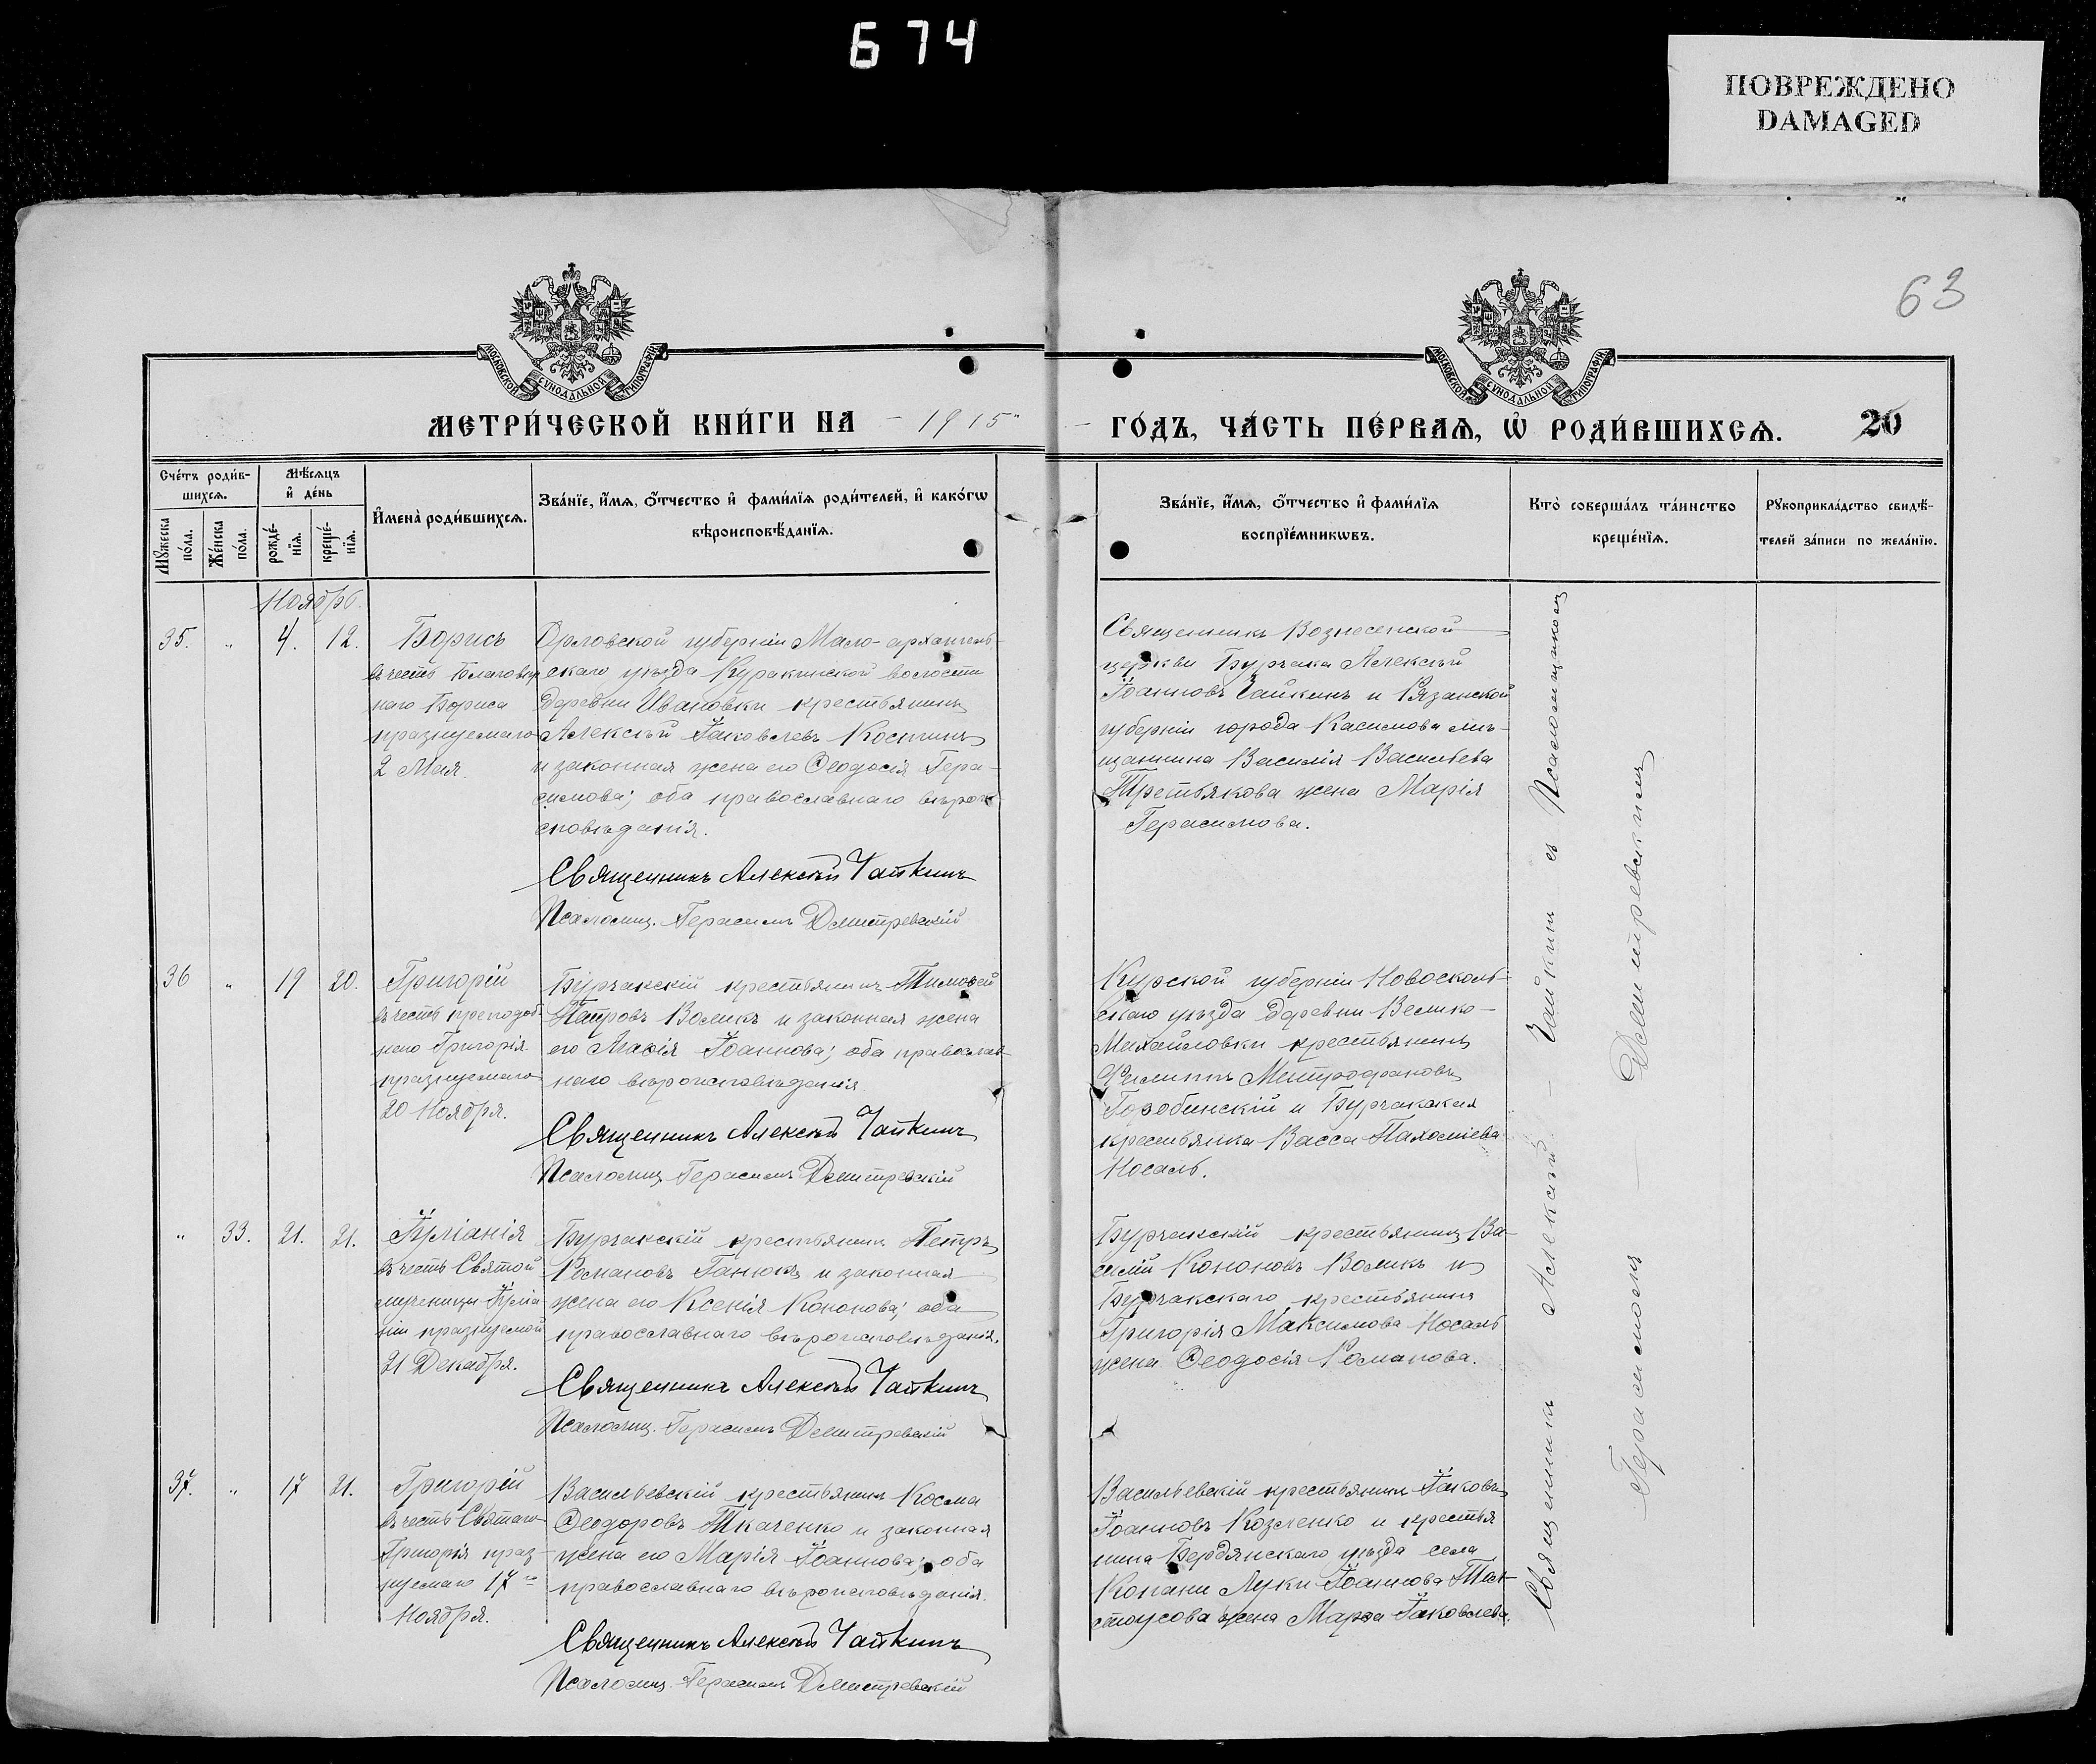 674
ПОВРЕЖДЕНО
DAMAGED
63
МОСКОВСКОЙ СѴНОДАЛЬНОЙ ТИПОГРАФІИ
МОСКОВСКОЙ СѴНОДАЛЬНОЙ ТИПОГРАФІИ
МЕТРИ́ЧЕСКОЙ КНИ́ГИ НА - 1915 -
ГО́ДЪ, ЧА́СТЬ ПЕ́РВАѦ, Ѡ҆ РОДИ́ВШИХСѦ. 20
Сче́тъ роди́в-
шихсѧ.
Мꙋ́жеска
по́ла.
Же́нска
по́ла.
Мѣ́сѧцъ
и҆ де́нь
рожде́-
нїѧ.
креще́-
нїѧ.
И҆мена̀ роди́вшихсѧ.
Зва́нїе, и҆́мѧ, ѻ҆́тчество и҆ фами́лїѧ роди́телей, и҆ како́гѡ
вѣроисповѣ́данїѧ.
Зва́нїе, и҆́мѧ, ѻ҆́тчество и҆ фами́лїѧ
воспрїе́мникѡвъ.
Кто̀ соверша́лъ та́инство
креще́нїѧ.
Рꙋкоприкла́дство свидѣ́-
телей за́писи по жела́нїю.
Ноябрь.
35. " 4. 12.
Борисъ
въ честь благовѣр
наго Бориса
празнуемаго
2 Мая.
Орловской губерніи Мало-архангель
скаго уѣзда Куракинской волости
деревни Ивановки крестьянинъ
Алексѣй Іаковлевъ Костинъ
и законная жена его Ѳеодосія Гера-
симова; оба православнаго вѣрои
сповѣданія.
Священникъ Алексѣй Чайкинъ
Псаломщ. Герасимъ Дмитревскій
Священникъ Вознесенской
церкви Бурчака Алексѣй
Іоанновъ Чайкинъ и Рязанской
губерніи города Касимова мѣ-
щанина Василія Васильева
Третьякова жена Марія
Герасимова.
36 " 19 20.
Григорій
въ честь преподоб-
наго Григорія
празнуемаго
20 Ноября.
Бурчакскій крестьянинъ Тимоѳей
Петровъ Воликъ и законная жена
его Агаѳія Іоаннова; оба православ-
наго вѣроисповѣданія
Священникъ Алексѣй Чайкинъ
Псаломщ. Герасимъ Дмитревскій
Курской губерніи Новосколь-
скаго уѣзда деревни Велико-
Михайловки крестьянинъ
Филиппъ Митрофановъ
Горобинскій и Бурчакская
крестьянка Васса Пахоміева
Носаль.
" 33. 21. 21.
Іуліанія
въ честь Святой
мученицы Іуліа
ніи празнуемой
21 Декабря.
Бурчакскій крестьянинъ Петръ
Романовъ Ганюкъ и законная
жена его Ксенія Кононова; оба
православнаго вѣроисповѣданія.
Священникъ Алексѣй Чайкинъ
Псаломщ. Герасимъ Дмитревскій
Бурчакскій крестьянинъ Ва-
силій Кононовъ Воликъ и
Бурчакскаго крестьянина
Григорія Максимова Носаль
жена Ѳеодосія Романова.
37. " 17 21.
Григорій
въ честь Святаго
Григорія праз-
нуемаго 17го
Ноября.
Васильевскій крестьянинъ Косма
Ѳеодоровъ Ткаченко и законная
жена его Марія Іоаннова; оба
православнаго вѣроисповѣданія.
Священникъ Алексѣй Чайкинъ
Псаломщ. Герасимъ Дмитревскій
Васильевскій крестьянинъ Іаковъ
Іоанновъ Козленко и крестья
нина Бердянскаго уѣзда села
Копани Луки Іоаннова Тол-
стоусова жена Марѳа Іаковлева.
Священникъ Алексѣй - Чайкинъ съ Псаломщикомъ
Герасимомъ - Дмитревскимъ